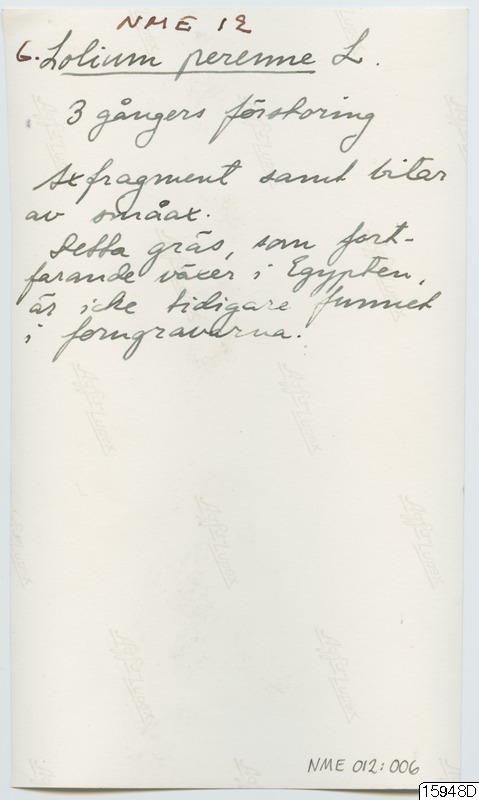 NME 12
6. Lolium perenne L.
3 gångers förstoring
Axfragment samt bitar
av småax.
Detta gräs, som fort-
farande växer i Egypten,
är icke tidigare funnet
i forngravarna.
NME 012:006
15948D